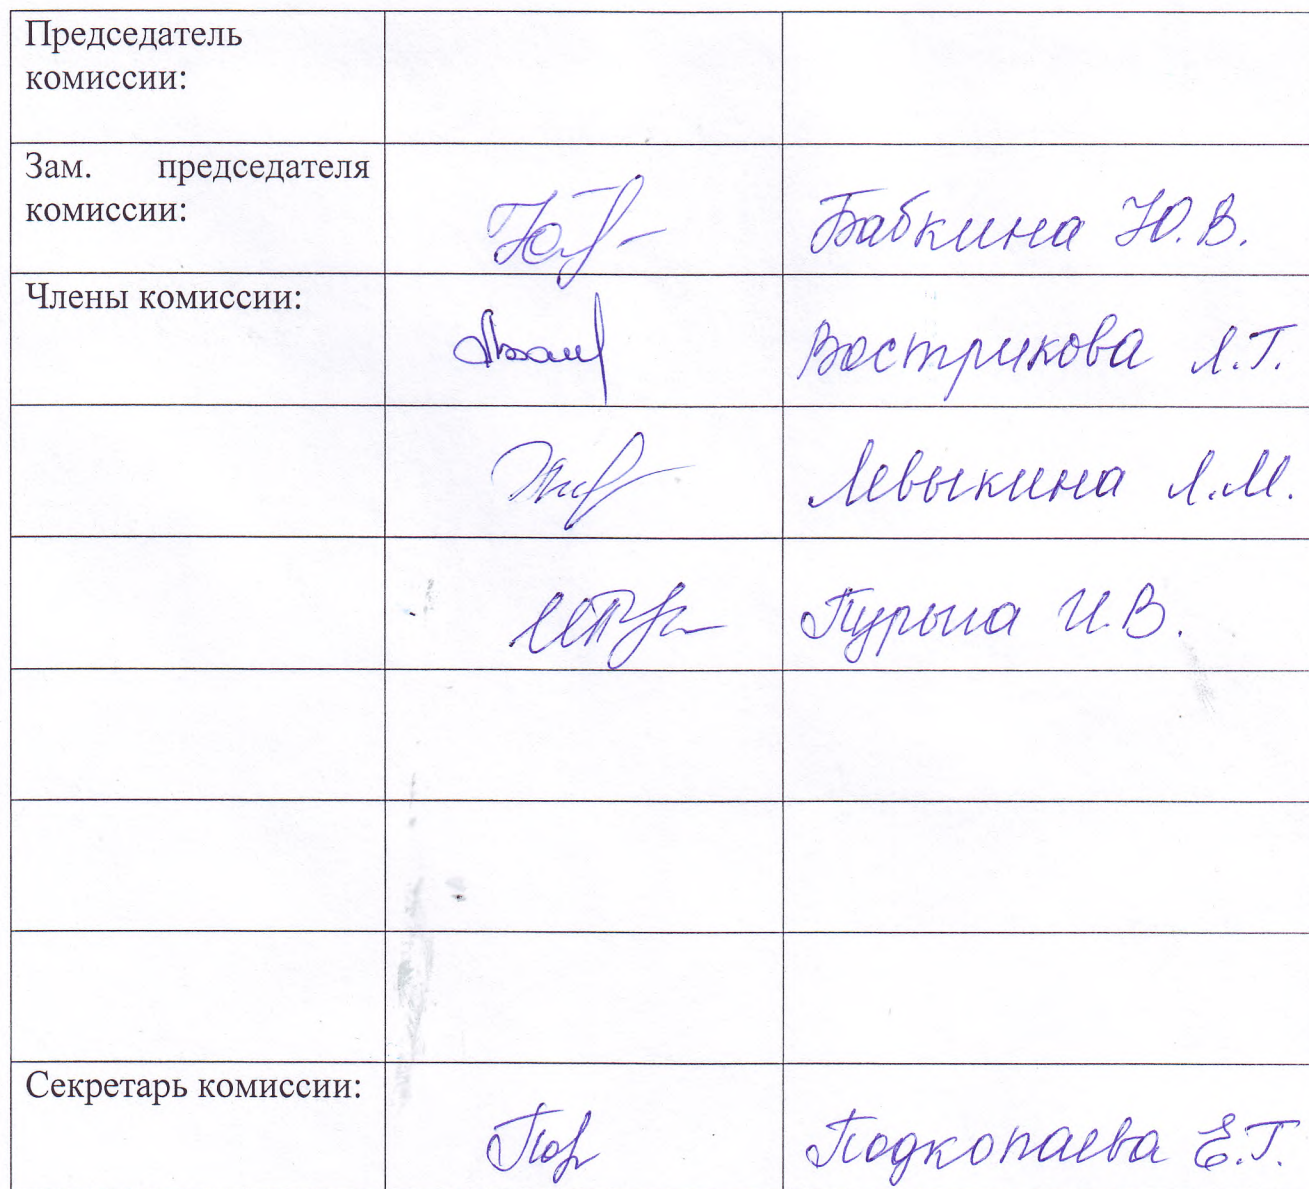 Председатель
комиссии:
Зам. председателя
комиссии:
Бабкина Ю.В.
Члены комиссии:
Вострикова Л.Г.
Левыкина Л.М.
И.В.
Секретарь комиссии:
Подкопаева Е.Г.